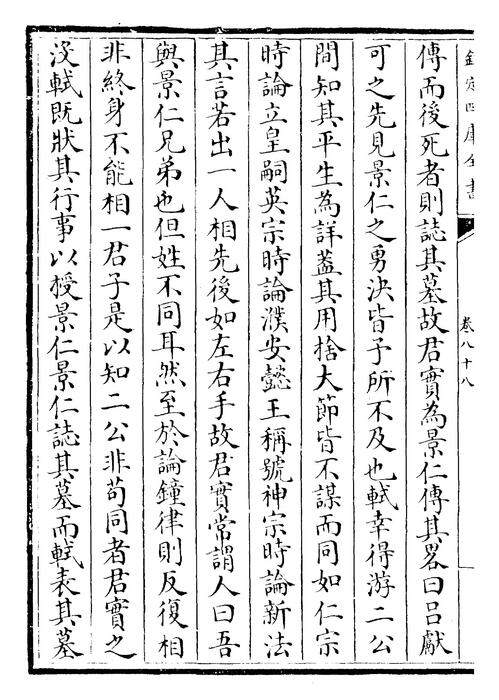 欽定四庫全書
卷八十八
傳而後死者則誌其墓故君實為景仁傳其畧曰呂獻
可之先見景仁之勇決皆予所不及也軾幸得游二公
間知其平生為詳葢其用捨大節皆不謀而同如仁宗
時論立皇嗣英宗時論濮安懿王稱號神宗時論新法
其言若出一人相先後如左右手故君實常謂人曰吾
與景仁兄弟也但姓不同耳然至於論鐘律則反復相
非終身不能相一君子是以知二公非苟同者君實之
沒軾既狀其行事以授景仁景仁誌其墓而軾表其墓